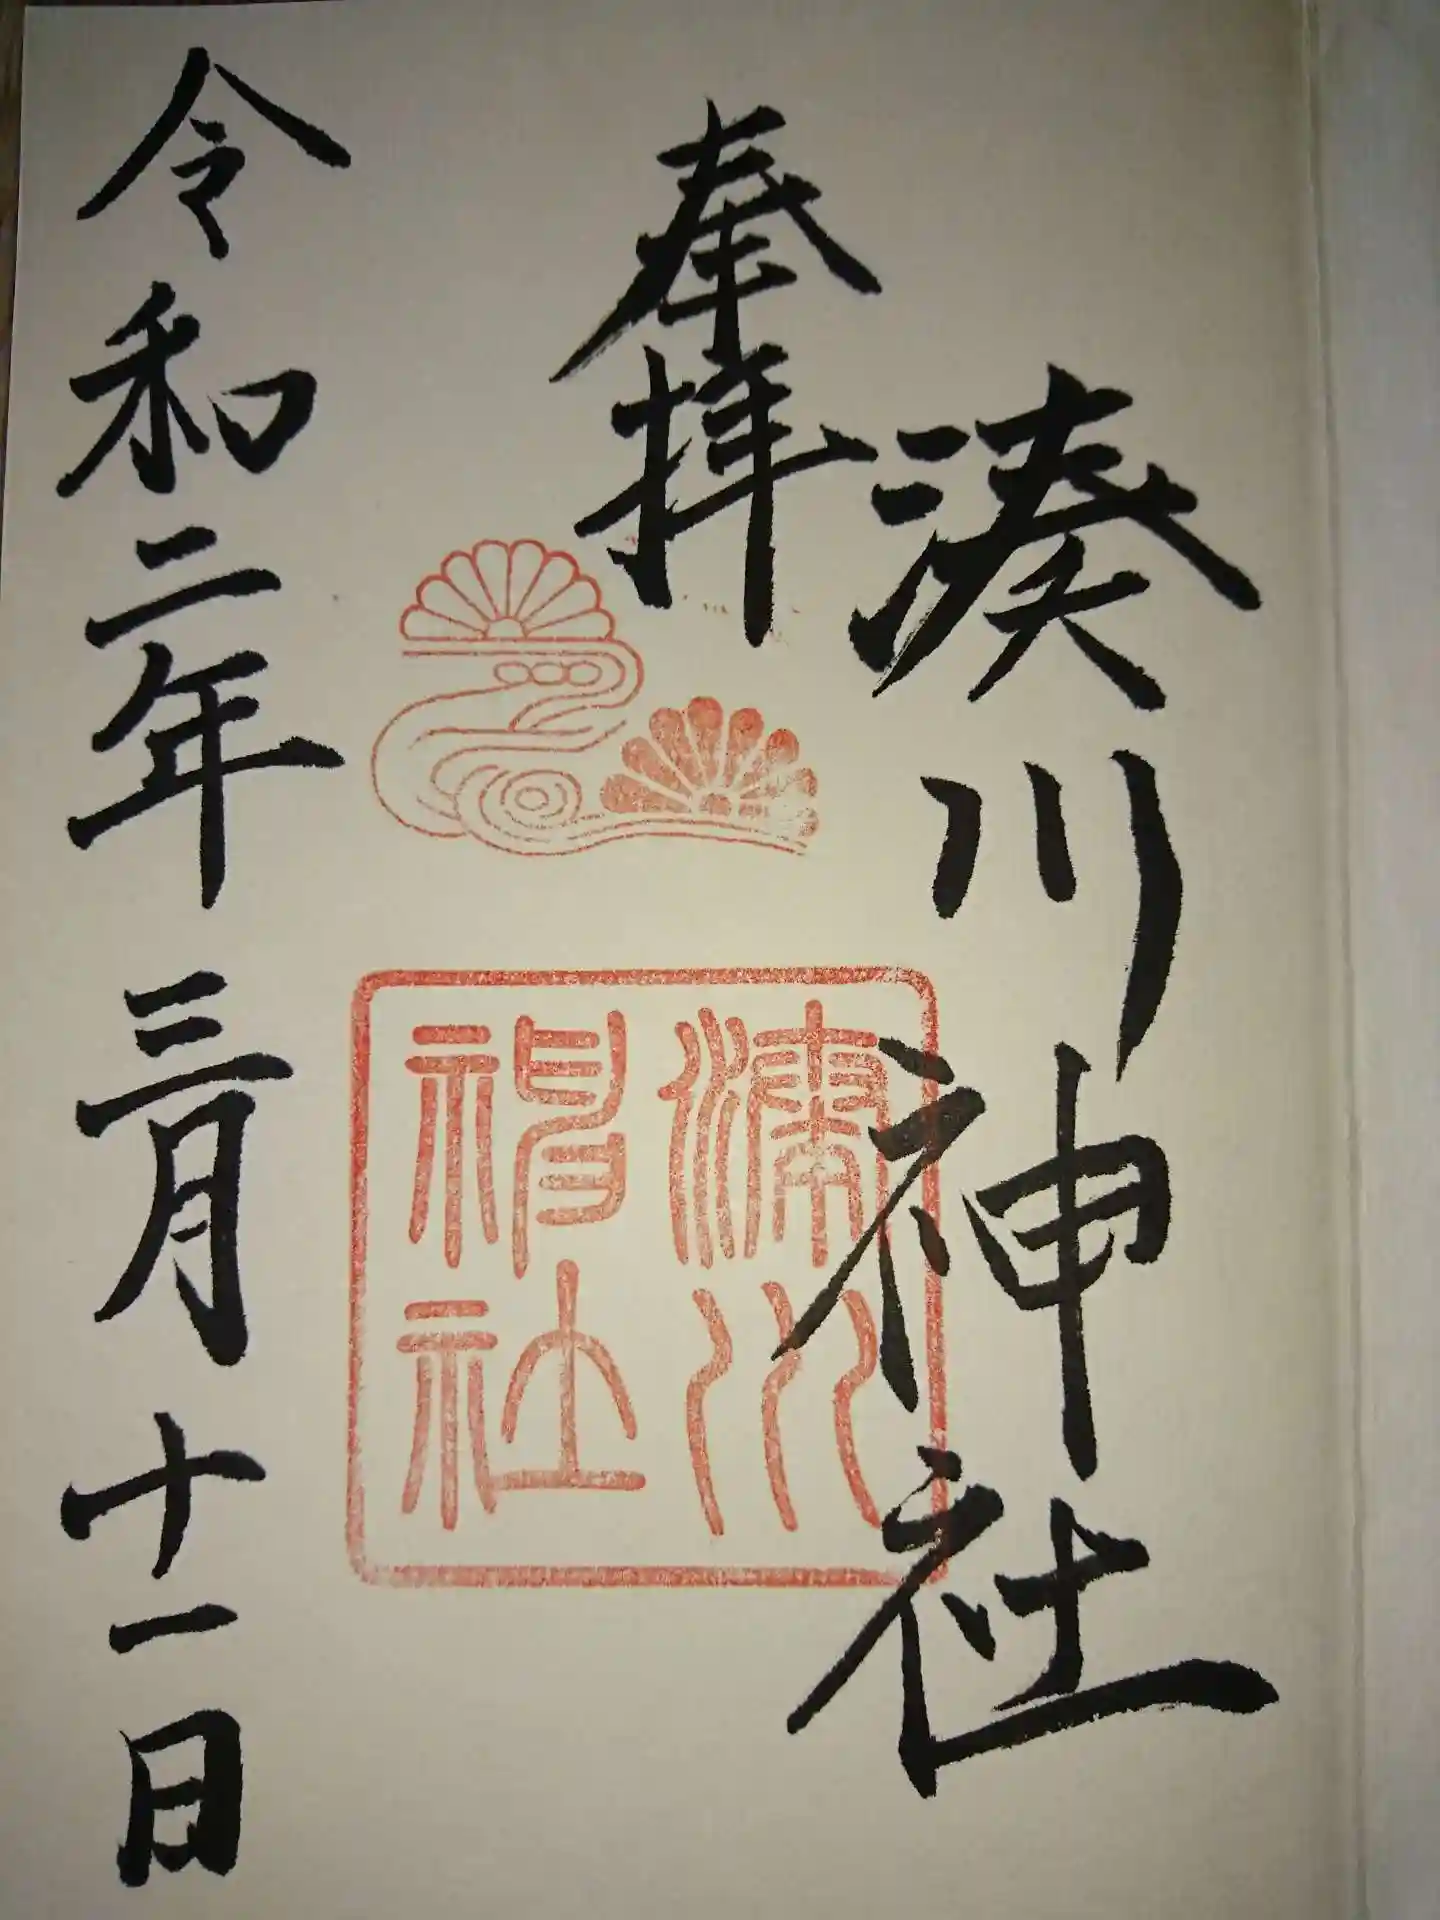 湊川神社
奉拝
湊川
神社
令和二年三月十一日